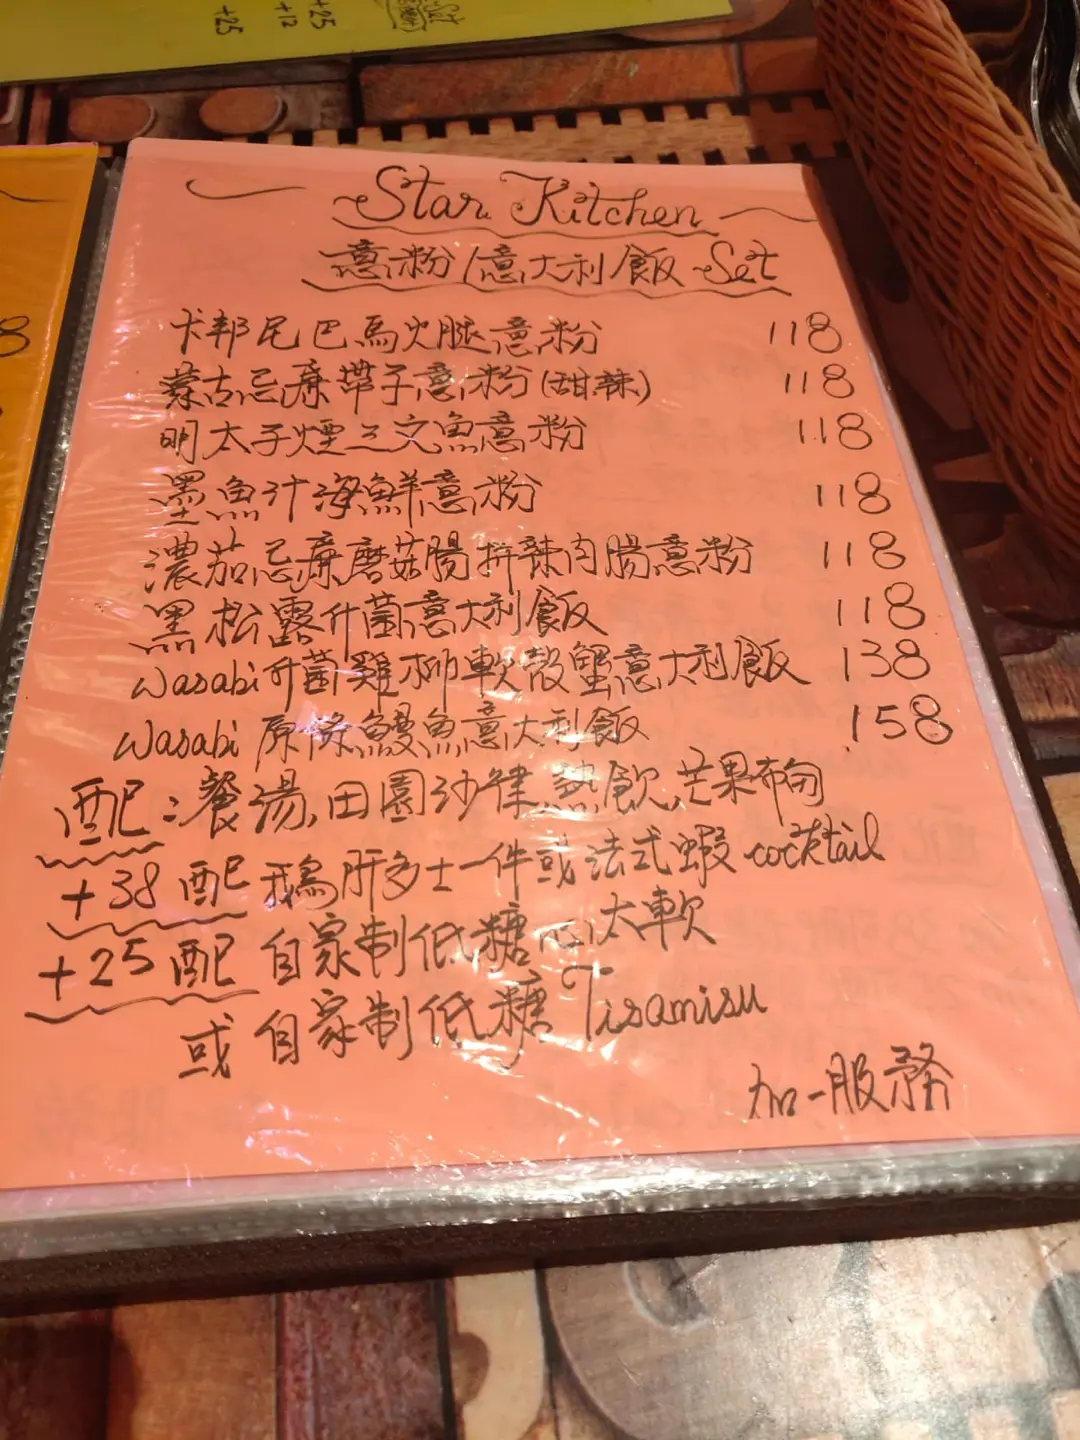 +25
+12
+25
Set
8
Star Kitchen
意粉/意大利飯 Set
卡邦尼巴馬火腿意粉 118
蒙古忌廉帶子意粉(甜辣) 118
明太子煙三文魚意粉 118
墨魚汁海鮮意粉 118
濃茄忌廉磨菇腸拼辣肉腸意粉 118
黑松露什菌意大利飯 118
Wasabi什菌雞柳軟殼蟹意大利飯 138
Wasabi 原條鰻魚意大利飯 158
配:餐湯,田園沙律,熱飲,芒果布甸
+38 配 鵝肝多士一件或法式蝦 cocktail
+25 配 自家制低糖心太軟
或 自家制低糖 Tiramisu
加一服務